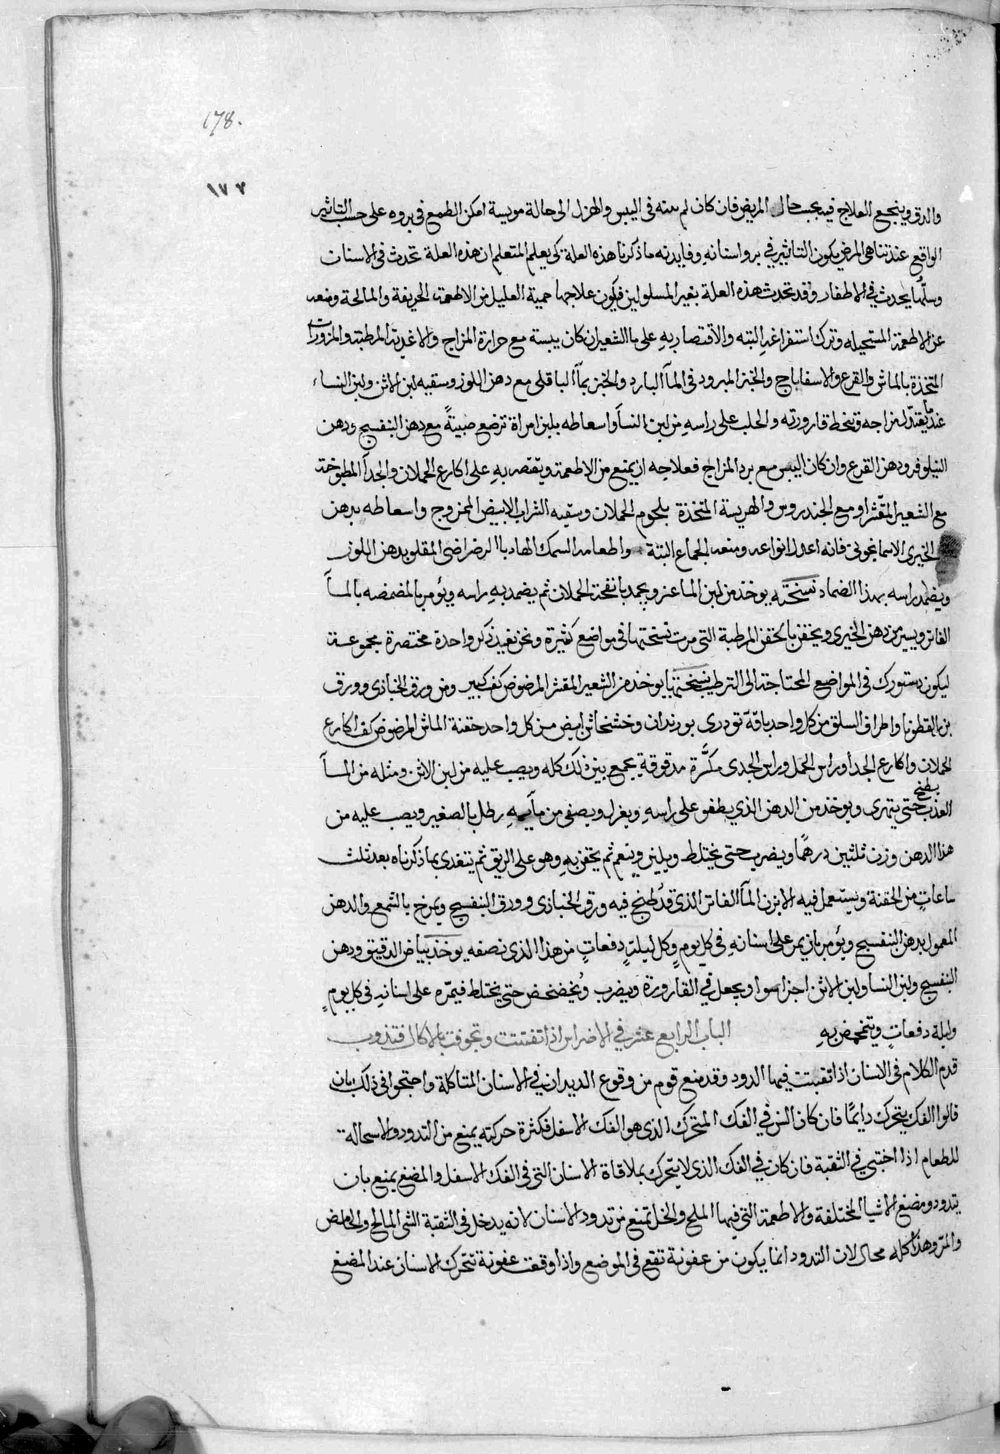 178.
١٧٧
والدق وينجع العلاج فيه بحسب حال المريض فان كان لم ينته في اليبس والهزل الى حالة مويسة امكن الطمع في بروه على حسب التاثير
الواقع عند تناهى المرض يكون التاثير في برو اسنانه وفايدته ما ذكرنا هذه العلة كى يعلم المتعلم ان هذه العلة تحدث في الاسنان
وسلما يحدث في الاطفار وقد تحدث هذه العلة بغير المسلولين فيكون علاجها حمية العليل من الاطعمة الحريفة والمالحة ومنعه
عن الاطعمة المستحيله وترك استفراغه البتة والاقتصار به على ما الشعير ان كان يبسه مع حرارة المزاج والاغدية المرطبة والمزورات
المتخذة بالماش والقرع والاسفاناج والخبز المبرود في الما البارد والخبز بما الباقلى مع دهن اللوز وسقيه لبن الاتن ولبن النساء
عند ما يعتدل مزاجه وتنحط قارورته والحلب على راسه من لبن النسا واسعاطه بلبن امراة ترضع صبية مع دهن البنفسج ودهن
النيلوفر ودهن القرع وان كان اليبس مع برد المزاج فعلاجه ان يمنع من الاطعمة ويقتصر به على اكارع الحملان والجدا المطبوخة
مع الشعير المقشر او مع الجندروس والهريسة المتخذة بلحوم الحملان وسقيه الشراب الابيض الممزوج واسعاطه بدهن
الخيرى الاسمانجونى فانه اعدل انواعه ومنعه الجماع البتة واطعامه السمك الهادبا الرضراضى المقلو بدهن اللوز
ويضمد راسه بهذا الضماد نسخته يوخذ من لبن الماعز ويجمد بانفحة الحملان ثم يضمد به راسه ويؤمر بالمضمضه بالما
الفاتر ويسير من دهن الخيرى ويحقن بالحقن المرطبة التى مرت نسختها في مواضع كثيرة ونحن نعيد ذكر واحدة مختصرة مجموعة
ليكون دستورك في المواضع المحتاجة الى الترطيب نسختها يوخذ من الشعير المقشر المرضوض كف كبير ومن ورق الخبازى وورق
بزر القطونا واطراف السلق من كل واحد باقة تودرى بوزندان وخشخاش ابيض من كل واحد حفنة الماش المرضوض كف اكارع
الحملان واكارع الجدا وراس الحمل وراس الجدى مكسرة مدقوقة يجمع بين ذلك كله ويصب عليه من لبن الاتن ومثله من الما
العذب يطبخ حتى يتهرى ويوخذ من الدهن الذي يطفو على راسه ويعزل ويصفى من مآيه رطل بالصغير ويصب عليه من
هذا الدهن وزن ثلثين درهما ويضرب حتى يختلط ويلين وينعم ثم يحقن به وهو على الريق ثم يتغدى بما ذكرناه بعد ثلث
ساعات من الحقنة ويستعمل فيه الابزن الما الفاتر الذى قد طبخ فيه ورق الخبازى وورق البنفسج ويمرخ بالشمع والدهن
المعمول بدهن البنفسج ويؤمر بان يمر على اسنانه في كل يوم وكل ليلة دفعات من هذا الذى نصفه يوخذ بياض الدقيق ودهن
البنفسج ولبن النسا ولبن الاتن اجزا سوا ويجعل في القارورة ويضرب ويخضخض حتى يختلط فيمره على اسنانه في كل يوم
وليلة دفعات ويتمضمض به الباب الرابع عشر في الاضراس اذا تفتتت وتجوفت بالاكال فتذوب
قدم الكلام في الاسنان اذا تفتتت فيها الدود وقد منع قوم من وقوع الديدان في الاسنان المتاكلة واحتجوا في ذلك بان
قالوا الفك يتحرك دايما فان كان السن في الفك المتحرك الذى هو الفك الاسفل فكثرة حركته يمنع من التدود والاستحالة
للطعام اذا اختبى في الثقبة فان كان في الفك الذى لا يتحرك بملاقاة الاسنان التى في الفك الاسفل والمضغ يمنع بان
يتدود ومضغ الاشيا المختلفة والاطعمة التي فيها الملح والخل تمنع من تدود الاسنان لانه يدخل في الثقبة الشئ المالح والحامض
والمر وهذا كله محال لان التدود انما يكون من عفونة تقع في الموضع واذا وقعت عفونة تتحرك الاسنان عند المضغ